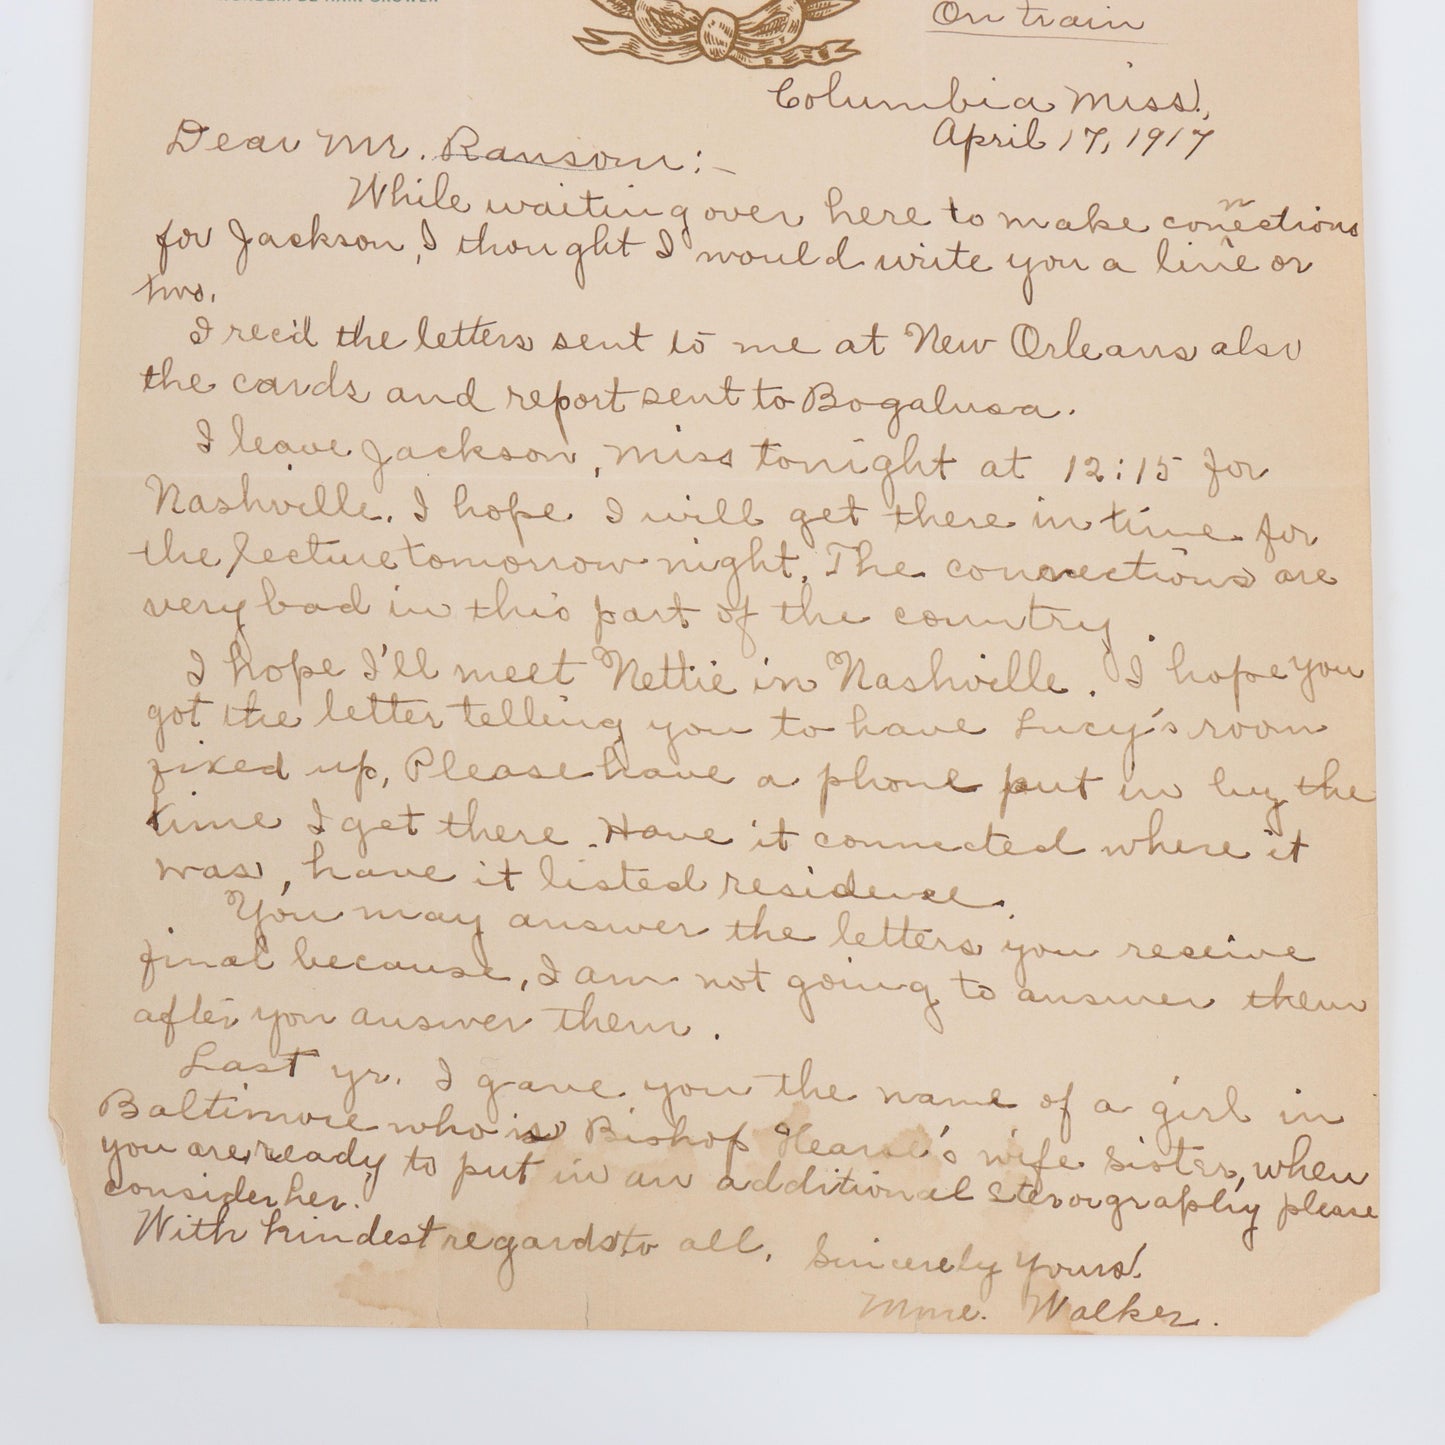 WONDERFUL HAIR GROWER
On train
Columbia Miss.,
April 17, 1917
Dear Mr. Ransom:-
While waiting over here to make conections
for Jackson, I thought I would write you a line or
two.
I rec'd the letters sent to me at New Orleans also
the cards and report sent to Bogalusa.
I leave Jackson, Miss tonight at 12:15 for
Nashville. I hope I will get there in time for
the lecture tomorrow night. The connections are
very bad in this part of the country.
I hope I'll meet Nettie in Nashville. I hope you
got the letter telling you to have Lucy's room
fixed up, Please have a phone put in by the
time I get there. Have it connected where it
was, have it listed residence.
You may answer the letters you receive
final because, I am not going to answer them
after you answer them.
Last yr. I gave you the name of a girl in
Baltimore who is Bishop Heard's wife sister, when
you are ready to put in an additional stenography please
consider her.
With kindest regards to all,
Sincerely yours.
Mme. Walker.